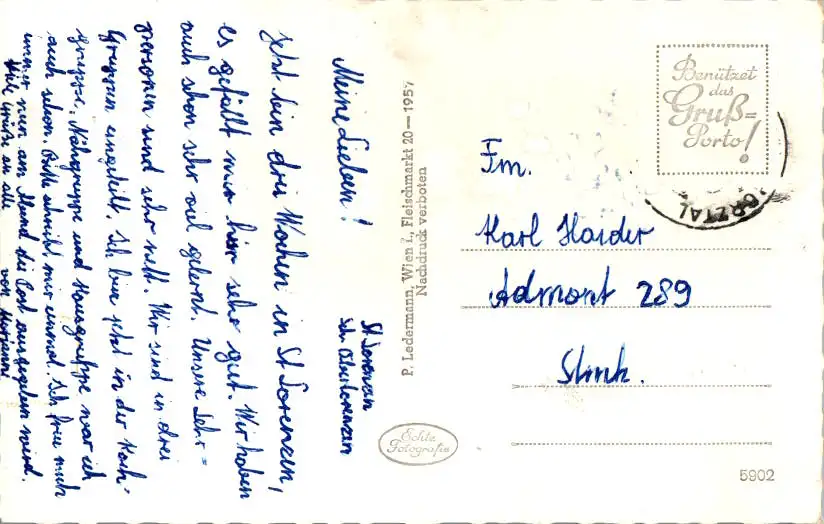 St Lorenzen
Meine Lieben!
jetzt bin drei Wochen in St Lorenzen,
es gefällt mir hier sehr gut. Wir haben
auch schon sehr viel gelernt. Unsere Lehr=
personen sind sehr nett. Wir sind in drei
Gruppen eingeteilt. Ich bin jetzt in der Koch-
gruppe. Nähgruppe und Hausgruppe war ich
auch schon. Bitte schreibt mir einmal. Ich freu mich
immer wenn am Abend die Post ausgegeben wird.
Viele Grüße an alle
von
P. Ledermann, Wien I., Fleischmarkt 20—1957
Nachdruck verboten
Echte
Fotografie
Benützet
das
Gruß=
Porto!
Fm.
Karl Haider
Admont 289
Stmk.
5902